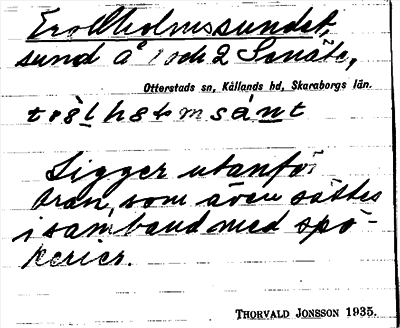 Trollholmssundet,
sund å 1 och 2 Senäte,
Otterstads sn, Kållands hd, Skaraborgs län.
Ligger utanför
Oran, som även sättes
i samband med spö-
kerier.
THORVALD JONSSON 1935.